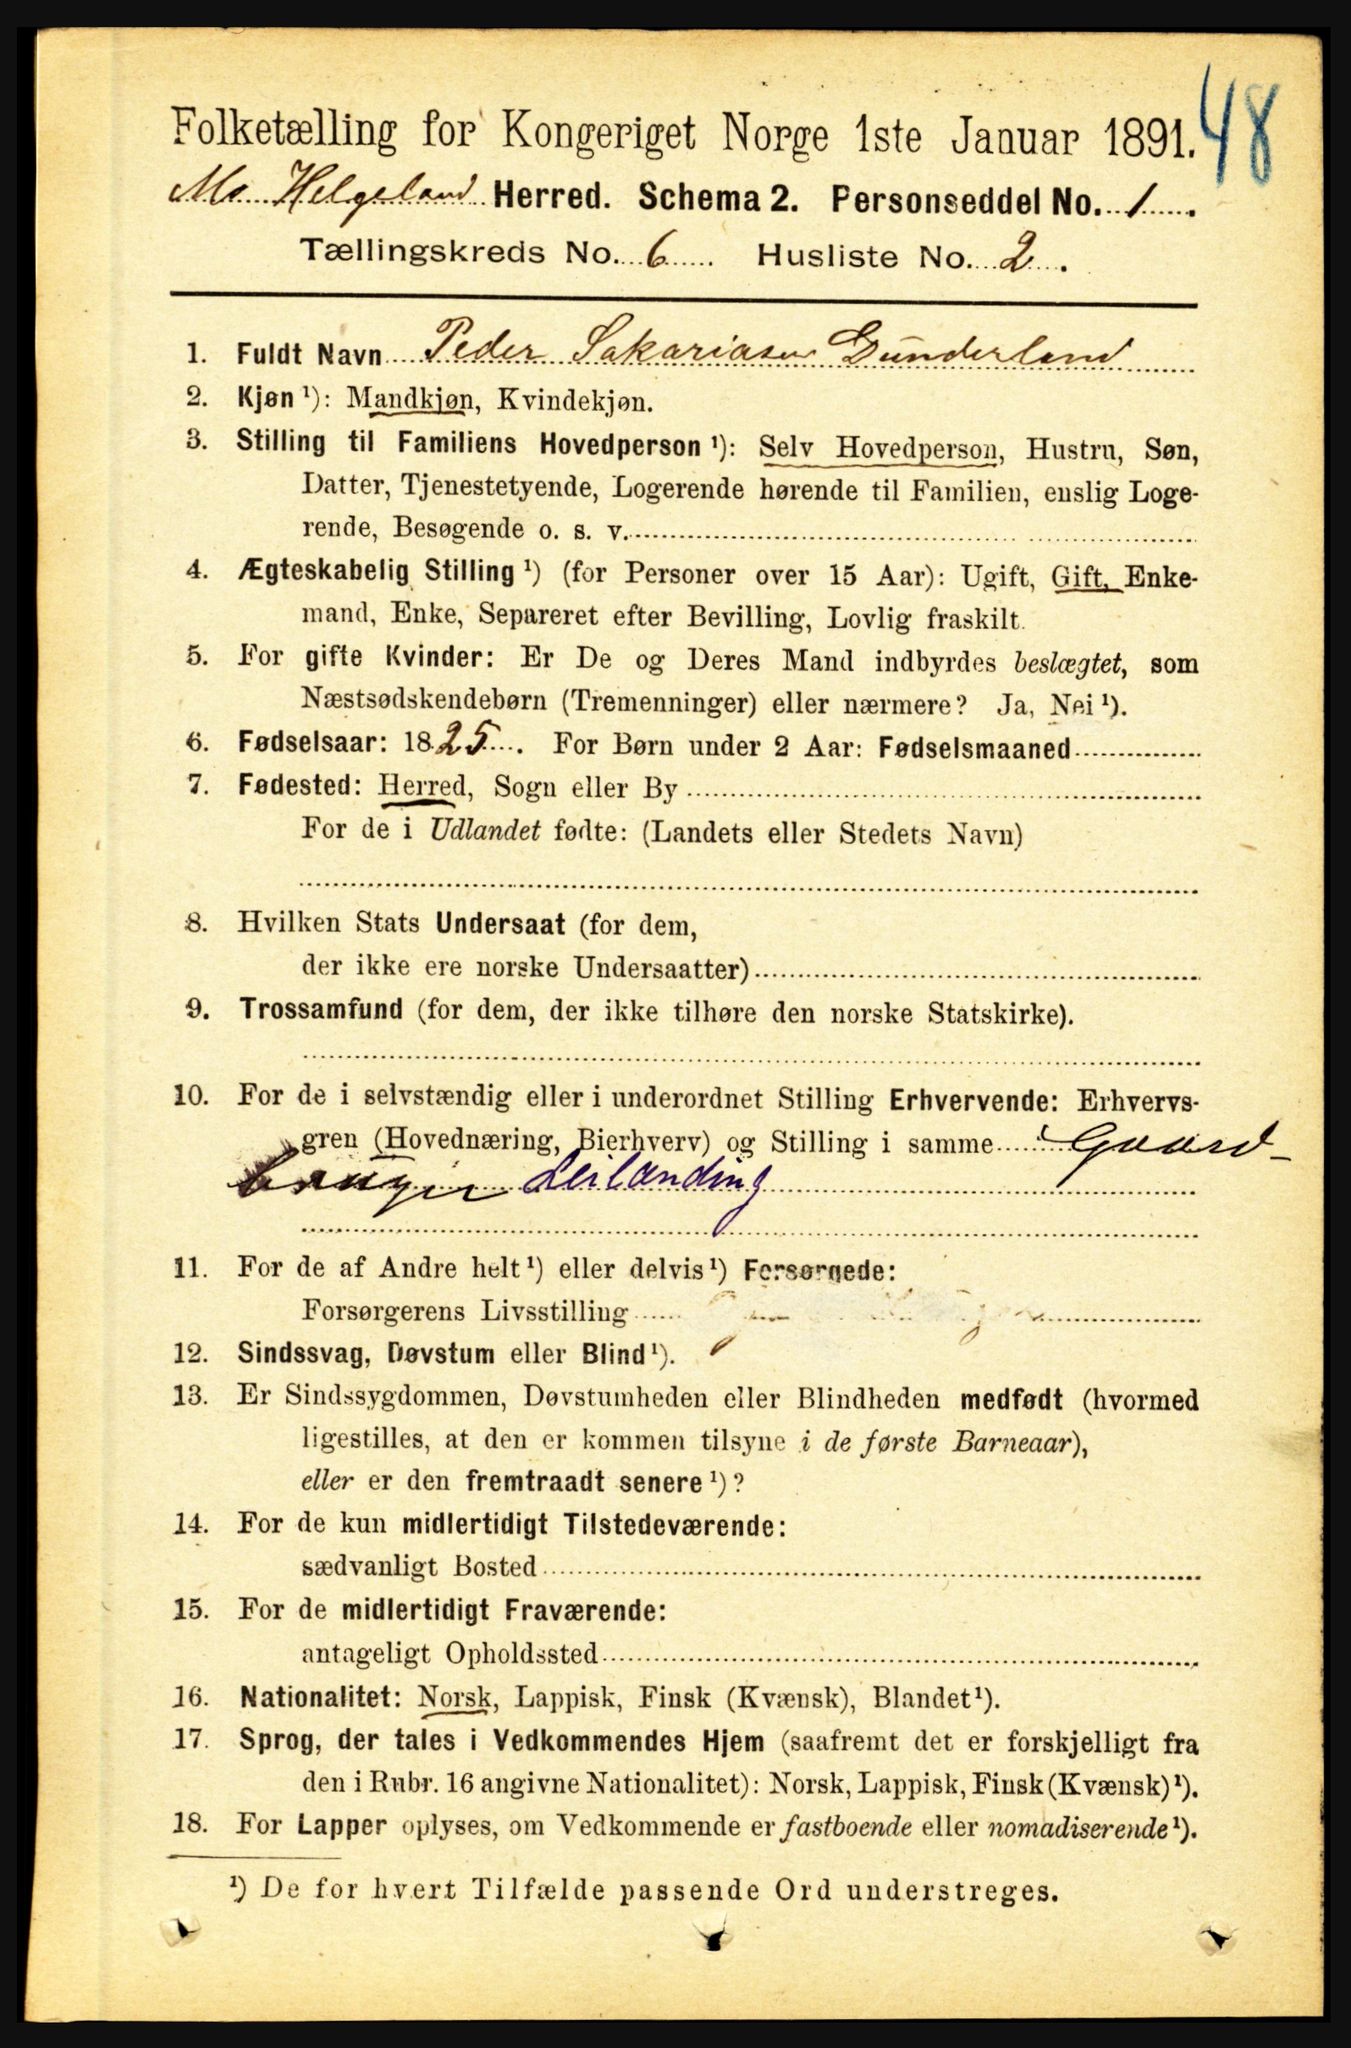 48
Folketælling for Kongeriget Norge 1ste Januar 1891.
Mo Helgeland Herred. Schema 2. Personseddel No. 1.
Tællingskreds No. 6 Husliste No. 2.
1. Fuldt Navn Peder Sakariasen Dunderland
2. Kjøn ¹): Mandkjøn, Kvindekjøn.
3. Stilling til Familiens Hovedperson ¹): Selv Hovedperson, Hustru, Søn,
Datter, Tjenestetyende, Logerende hørende til Familien, enslig Loge-
rende, Besøgende o. s. v.
4. Ægteskabelig Stilling ¹) (for Personer over 15 Aar): Ugift, Gift, Enke-
mand, Enke, Separeret efter Bevilling, Lovlig fraskilt.
5. For gifte Kvinder: Er De og Deres Mand indbyrdes beslægtet, som
Næstsødskendebørn (Tremenninger) eller nærmere? Ja, Nei ¹).
6. Fødselsaar: 1825. For Børn under 2 Aar: Fødselsmaaned
7. Fødested: Herred, Sogn eller By
For de i Udlandet fødte: (Landets eller Stedets Navn)
8. Hvilken Stats Undersaat (for dem,
der ikke ere norske Undersaatter)
9. Trossamfund (for dem, der ikke tilhøre den norske Statskirke).
10. For de i selvstændig eller i underordnet Stilling Erhvervende: Erhvervs-
gren (Hovednæring, Bierhverv) og Stilling i samme Gaard-
bruger Leilænding
11. For de af Andre helt ¹) eller delvis ¹) Forsørgede:
Forsørgerens Livsstilling
12. Sindssvag, Døvstum eller Blind ¹).
13. Er Sindssygdommen, Døvstumheden eller Blindheden medfødt (hvormed
ligestilles, at den er kommen tilsyne i de første Barneaar),
eller er den fremtraadt senere ¹)?
14. For de kun midlertidigt Tilstedeværende:
sædvanligt Bosted
15. For de midlertidigt Fraværende:
antageligt Opholdssted
16. Nationalitet: Norsk, Lappisk, Finsk (Kvænsk), Blandet ¹).
17. Sprog, der tales i Vedkommendes Hjem (saafremt det er forskjelligt fra
den i Rubr. 16 angivne Nationalitet): Norsk, Lappisk, Finsk (Kvænsk) ¹).
18. For Lapper oplyses, om Vedkommende er fastboende eller nomadiserende ¹).
¹) De for hvert Tilfælde passende Ord understreges.